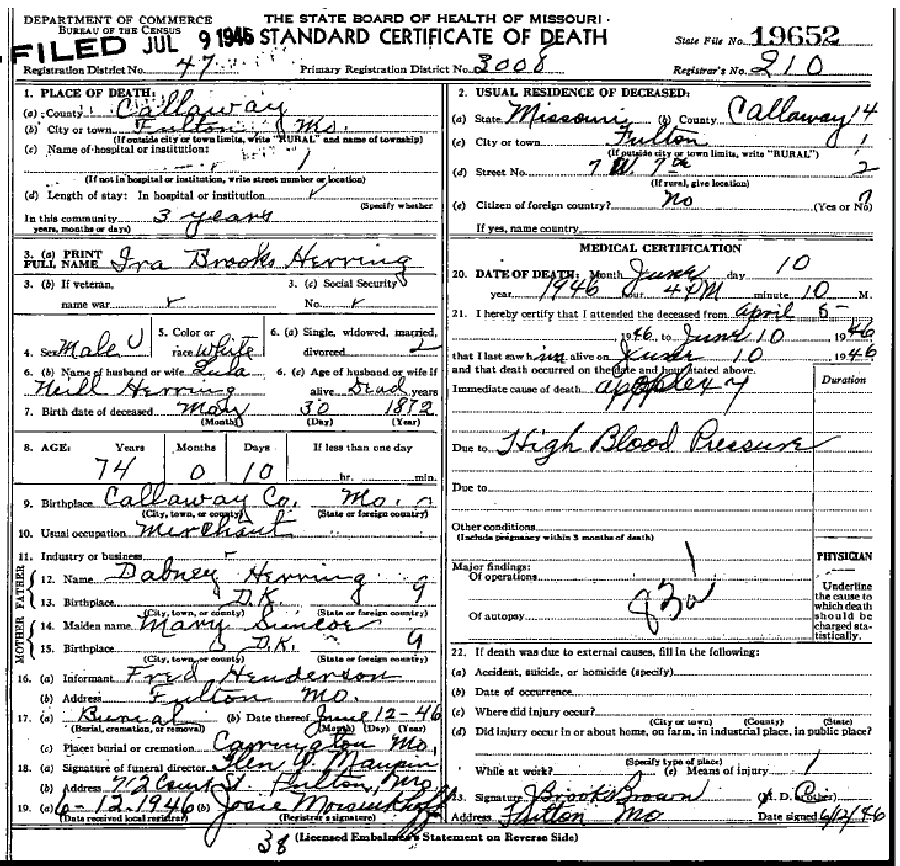 DEPARTMENT OF COMMERCE
BUREAU OF THE CENSUS
THE STATE BOARD OF HEALTH OF MISSOURI
STANDARD CERTIFICATE OF DEATH
FILED JUL 9 1946
State File No. 19652
Registration District No. 47
Primary Registration District No. 3008
Registrar's No. 210
1. PLACE OF DEATH:
(a) County Callaway
(b) City or town Fulton, Mo.
(If outside city or town limits, write "RURAL" and name of township)
(c) Name of hospital or institution:
(If not in hospital or institution, write street number or location)
(d) Length of stay: In hospital or institution
(Specify whether
In this community 3 years
years, months or days)
3. (a) PRINT FULL NAME Ira Brooks Herring
3. (b) If veteran, name war
3. (c) Social Security No.
4. Sex Male
5. Color or race White
6. (a) Single, widowed, married, divorced 2
6. (b) Name of husband or wife Lula Neill Herring
6. (c) Age of husband or wife if alive Dead years
7. Birth date of deceased May 30 1872
(Month) (Day) (Year)
8. AGE: Years Months Days If less than one day
74 0 10 hr. min.
9. Birthplace Callaway Co. Mo.
(City, town, or county) (State or foreign country)
10. Usual occupation Merchant
11. Industry or business
FATHER
12. Name Dabney Herring
13. Birthplace D.K. 9
(City, town, or county) (State or foreign country)
MOTHER
14. Maiden name Mary
15. Birthplace D.K. 9
(City, town, or county) (State or foreign country)
16. (a) Informant Fred Henderson
(b) Address Fulton Mo.
17. (a) Burial (b) Date thereof June 12-46
(Burial, cremation, or removal) (Month) (Day) (Year)
(c) Place: burial or cremation Carrington Mo.
18. (a) Signature of funeral director Glen Y. Maupin
(b) Address Court St. Fulton, Mo.
19. (a) 6-12-1946 (b) Josie
(Date received local registrar) (Registrar's signature)
2. USUAL RESIDENCE OF DECEASED:
(a) State Missouri (b) County Callaway 14
(c) City or town Fulton 1
(If outside city or town limits, write "RURAL")
(d) Street No. 7 W 7th 2
(If rural, give location)
(e) Citizen of foreign country? No (Yes or No)
If yes, name country
MEDICAL CERTIFICATION
20. DATE OF DEATH: Month June day 10
year 1946 hour 4 PM minute 10 M.
21. I hereby certify that I attended the deceased from April 5-
1946, to June 10 1946
that I last saw him alive on June 10 1946
and that death occurred on the date and hour stated above.
Duration
Immediate cause of death apoplexy
Due to High Blood Pressure
Due to
Other conditions
(Include pregnancy within 3 months of death)
Major findings:
Of operations
Of autopsy
83a
PHYSICIAN
Underline the cause to which death should be charged statistically.
22. If death was due to external causes, fill in the following:
(a) Accident, suicide, or homicide (specify)
(b) Date of occurrence
(c) Where did injury occur?
(City or town) (County) (State)
(d) Did injury occur in or about home, on farm, in industrial place, in public place?
(Specify type of place)
While at work? (e) Means of injury
23. Signature Brooks Brown (M. D. or other)
Address Fulton Mo Date signed 6/12/46
38 (Licensed Embalmer's Statement on Reverse Side)